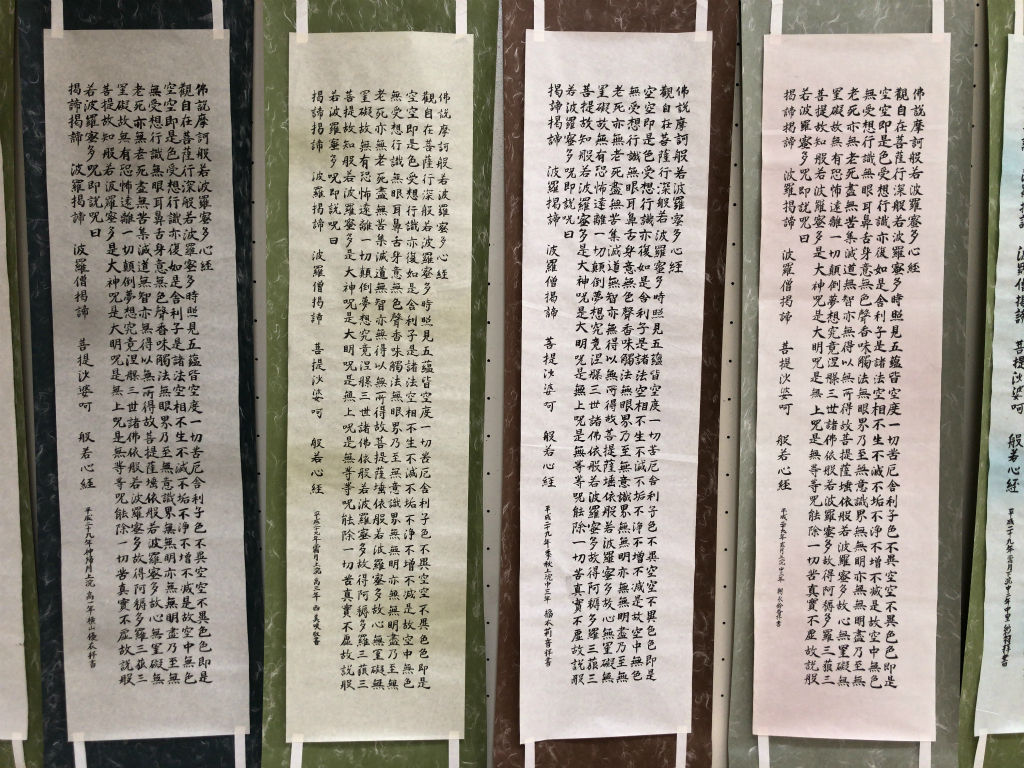 波羅僧揭諦 菩提沙婆呵 般若心経 平成二十九年
佛説摩訶般若波羅蜜多心経
觀自在菩薩行深般若波羅蜜多時照見五蘊皆空度一切苦厄舎利子色不異空空不異色色即是
空空即是色受想行識亦復如是舎利子是諸法空相不生不滅不垢不浄不増不減是故空中無色
無受想行識無眼耳鼻舌身意無色聲香味觸法無眼界乃至無意識界無無明亦無無明盡乃至無
老死亦無老死盡無苦集滅道無智亦無得以無所得故菩提薩埵依般若波羅蜜多故心無罣礙無
罣礙故無有恐怖遠離一切顛倒夢想究竟涅槃三世諸佛依般若波羅蜜多故得阿耨多羅三藐三
菩提故知般若波羅蜜多是大神呪是大明呪是無上呪是無等等呪能除一切苦真實不虚故説般
若波羅蜜多呪即説呪曰
揭諦揭諦 波羅揭諦 波羅僧揭諦 菩提沙婆呵 般若心経 平成二十九年
佛説摩訶般若波羅蜜多心経
觀自在菩薩行深般若波羅蜜多時照見五蘊皆空度一切苦厄舎利子色不異空空不異色色即是
空空即是色受想行識亦復如是舎利子是諸法空相不生不滅不垢不浄不増不減是故空中無色
無受想行識無眼耳鼻舌身意無色聲香味觸法無眼界乃至無意識界無無明亦無無明盡乃至無
老死亦無老死盡無苦集滅道無智亦無得以無所得故菩提薩埵依般若波羅蜜多故心無罣礙無
罣礙故無有恐怖遠離一切顛倒夢想究竟涅槃三世諸佛依般若波羅蜜多故得阿耨多羅三藐三
菩提故知般若波羅蜜多是大神呪是大明呪是無上呪是無等等呪能除一切苦真實不虚故説般
若波羅蜜多呪即説呪曰
揭諦揭諦 波羅揭諦 波羅僧揭諦 菩提沙婆呵 般若心経 平成二十九年季秋上浣中三年
佛説摩訶般若波羅蜜多心経
觀自在菩薩行深般若波羅蜜多時照見五蘊皆空度一切苦厄舎利子色不異空空不異色色即是
空空即是色受想行識亦復如是舎利子是諸法空相不生不滅不垢不浄不増不減是故空中無色
無受想行識無眼耳鼻舌身意無色聲香味觸法無眼界乃至無意識界無無明亦無無明盡乃至無
老死亦無老死盡無苦集滅道無智亦無得以無所得故菩提薩埵依般若波羅蜜多故心無罣礙無
罣礙故無有恐怖遠離一切顛倒夢想究竟涅槃三世諸佛依般若波羅蜜多故得阿耨多羅三藐三
菩提故知般若波羅蜜多是大神呪是大明呪是無上呪是無等等呪能除一切苦真實不虚故説般
若波羅蜜多呪即説呪曰
揭諦揭諦 波羅揭諦 波羅僧揭諦 菩提沙婆呵 般若心経 平成二十九年霜月上浣 高二年
佛説摩訶般若波羅蜜多心経
觀自在菩薩行深般若波羅蜜多時照見五蘊皆空度一切苦厄舎利子色不異空空不異色色即是
空空即是色受想行識亦復如是舎利子是諸法空相不生不滅不垢不浄不増不減是故空中無色
無受想行識無眼耳鼻舌身意無色聲香味觸法無眼界乃至無意識界無無明亦無無明盡乃至無
老死亦無老死盡無苦集滅道無智亦無得以無所得故菩提薩埵依般若波羅蜜多故心無罣礙無
罣礙故無有恐怖遠離一切顛倒夢想究竟涅槃三世諸佛依般若波羅蜜多故得阿耨多羅三藐三
菩提故知般若波羅蜜多是大神呪是大明呪是無上呪是無等等呪能除一切苦真實不虚故説般
若波羅蜜多呪即説呪曰
揭諦揭諦 波羅揭諦 波羅僧揭諦 菩提沙婆呵 般若心経 平成二十九年仲陽月上浣 高二年 横山優衣拝書